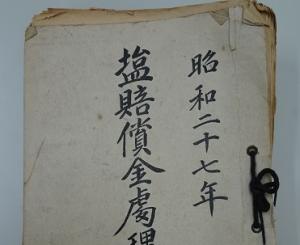 昭和二十七年
塩賠償金處理